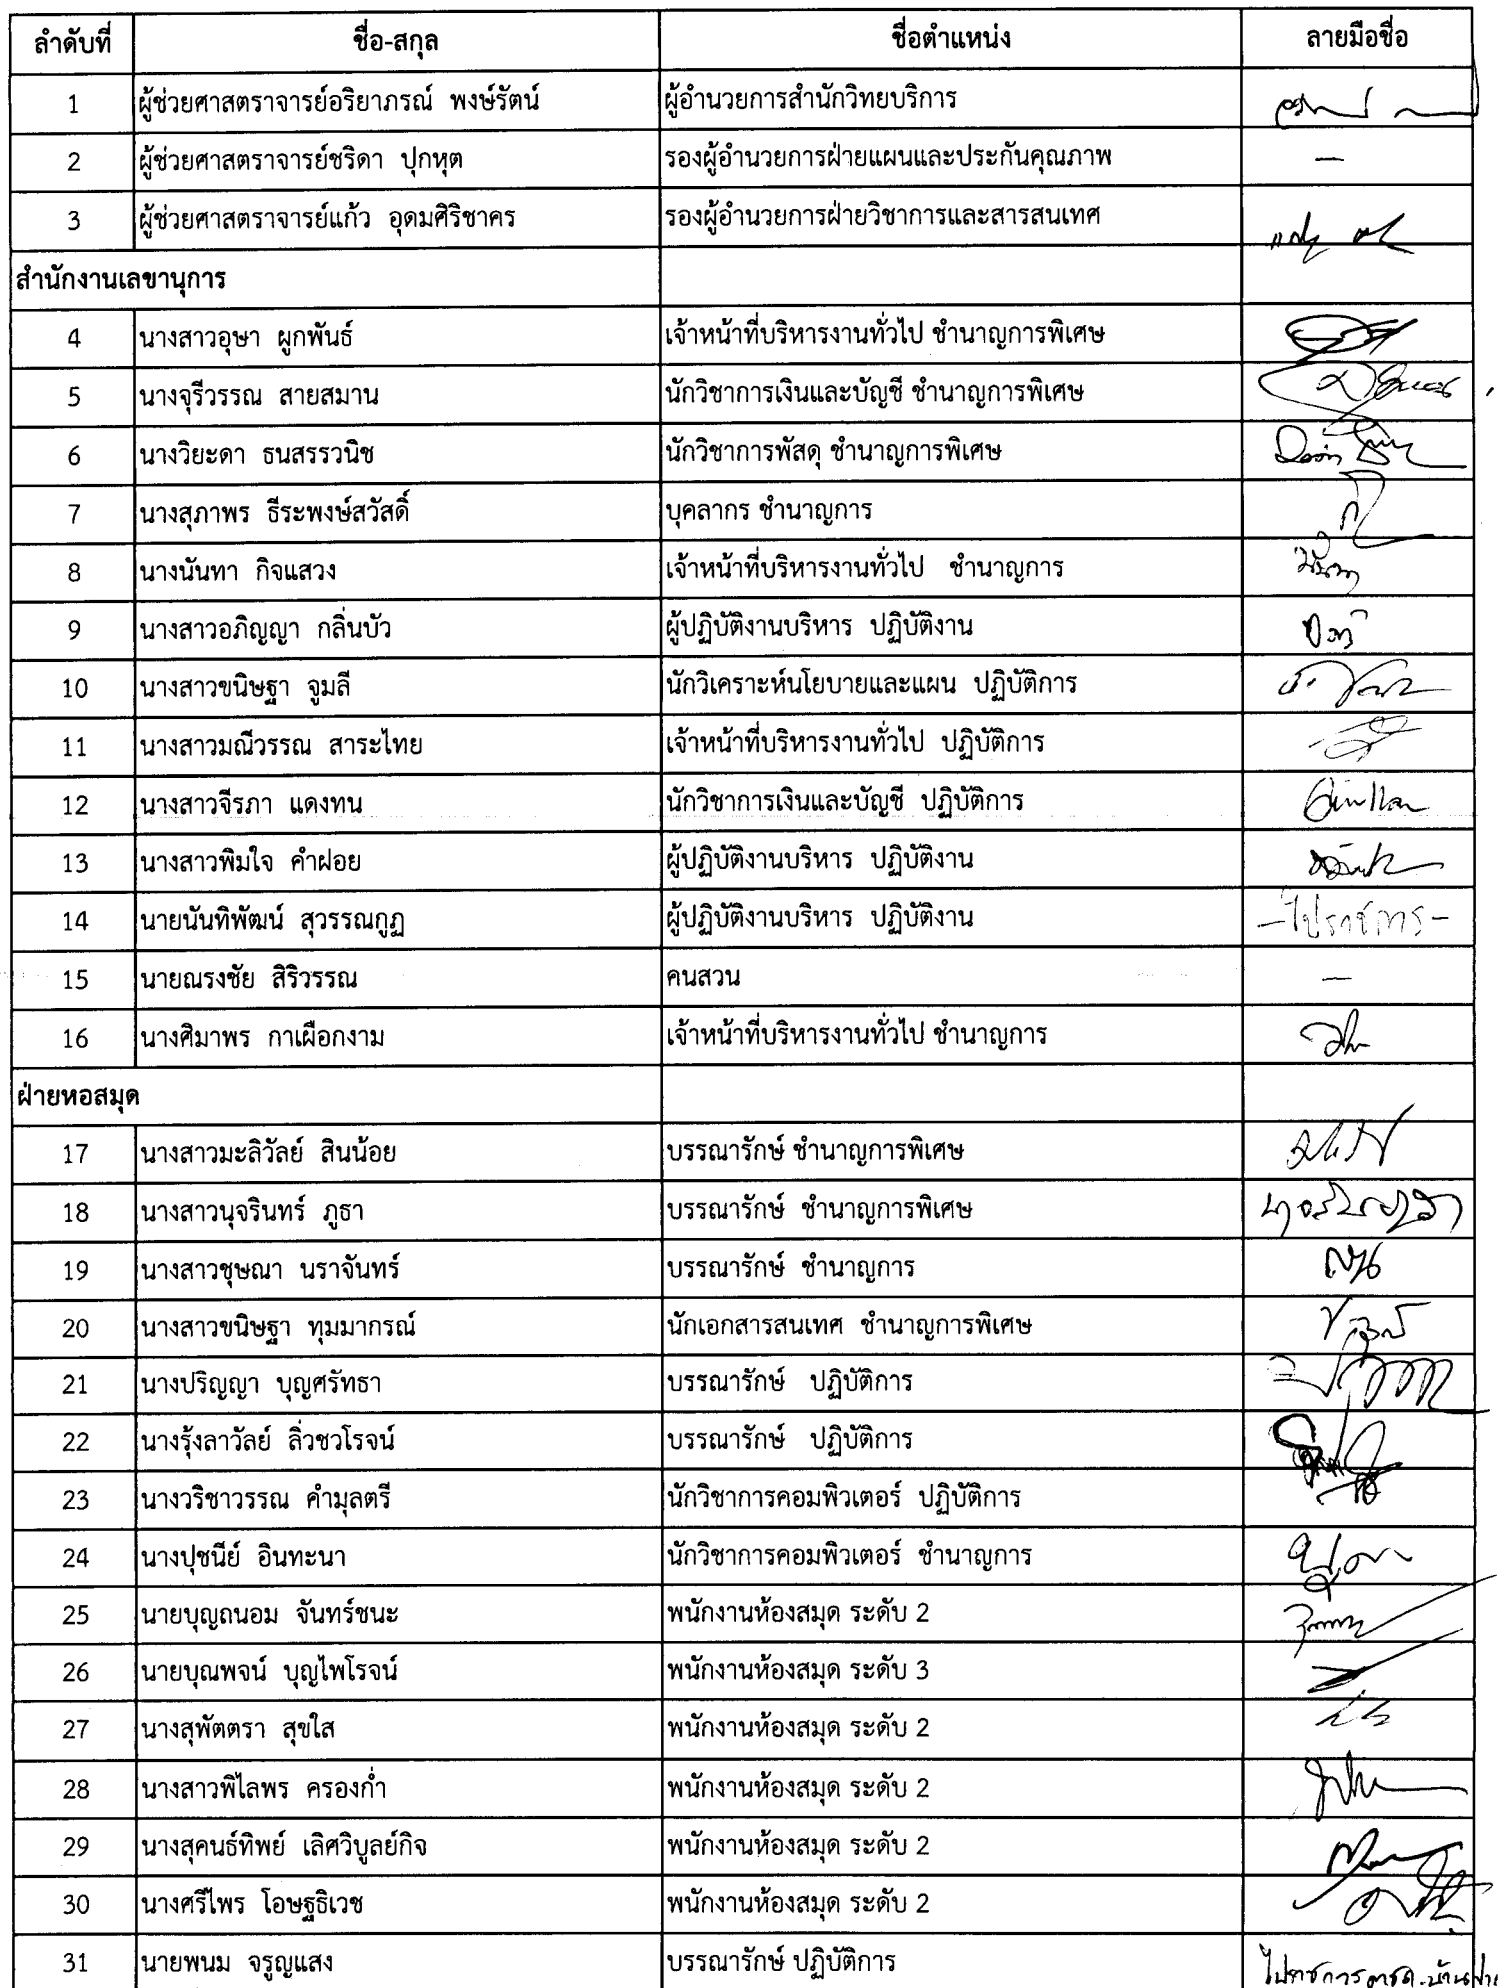 ลำดับที่ ชื่อ-สกุล ชื่อตำแหน่ง ลายมือชื่อ
1 ผู้ช่วยศาสตราจารย์อริยาภรณ์ พงษ์รัตน์ ผู้อำนวยการสำนักวิทยบริการ
2 ผู้ช่วยศาสตราจารย์ชริดา ปุกหุต รองผู้อำนวยการฝ่ายแผนและประกันคุณภาพ —
3 ผู้ช่วยศาสตราจารย์แก้ว อุดมศิริชาคร รองผู้อำนวยการฝ่ายวิชาการและสารสนเทศ
สำนักงานเลขานุการ
4 นางสาวอุษา ผูกพันธ์ เจ้าหน้าที่บริหารงานทั่วไป ชำนาญการพิเศษ
5 นางจุรีวรรณ สายสมาน นักวิชาการเงินและบัญชี ชำนาญการพิเศษ
6 นางวิยะดา ธนสรรวนิช นักวิชาการพัสดุ ชำนาญการพิเศษ
7 นางสุภาพร ธีระพงษ์สวัสดิ์ บุคลากร ชำนาญการ
8 นางนันทา กิจแสวง เจ้าหน้าที่บริหารงานทั่วไป ชำนาญการ
9 นางสาวอภิญญา กลิ่นบัว ผู้ปฏิบัติงานบริหาร ปฏิบัติงาน
10 นางสาวขนิษฐา จูมลี นักวิเคราะห์นโยบายและแผน ปฏิบัติการ
11 นางสาวมณีวรรณ สาระไทย เจ้าหน้าที่บริหารงานทั่วไป ปฏิบัติการ
12 นางสาวจีรภา แดงทน นักวิชาการเงินและบัญชี ปฏิบัติการ
13 นางสาวพิมใจ คำฝอย ผู้ปฏิบัติงานบริหาร ปฏิบัติงาน
14 นายนันทิพัฒน์ สุวรรณกูฏ ผู้ปฏิบัติงานบริหาร ปฏิบัติงาน -ไปราชการ-
15 นายณรงชัย สิริวรรณ คนสวน —
16 นางศิมาพร กาเผือกงาม เจ้าหน้าที่บริหารงานทั่วไป ชำนาญการ
ฝ่ายหอสมุด
17 นางสาวมะลิวัลย์ สินน้อย บรรณารักษ์ ชำนาญการพิเศษ
18 นางสาวนุจรินทร์ ภูธา บรรณารักษ์ ชำนาญการพิเศษ
19 นางสาวชุษณา นราจันทร์ บรรณารักษ์ ชำนาญการ
20 นางสาวขนิษฐา ทุมมากรณ์ นักเอกสารสนเทศ ชำนาญการพิเศษ
21 นางปริญญา บุญศรัทธา บรรณารักษ์ ปฏิบัติการ
22 นางรุ้งลาวัลย์ ลิ่วชวโรจน์ บรรณารักษ์ ปฏิบัติการ
23 นางวริชาวรรณ คำมุลตรี นักวิชาการคอมพิวเตอร์ ปฏิบัติการ
24 นางปุชนีย์ อินทะนา นักวิชาการคอมพิวเตอร์ ชำนาญการ
25 นายบุญถนอม จันทร์ชนะ พนักงานห้องสมุด ระดับ 2
26 นายบุณพจน์ บุญไพโรจน์ พนักงานห้องสมุด ระดับ 3
27 นางสุพัตตรา สุขใส พนักงานห้องสมุด ระดับ 2
28 นางสาวพิไลพร ครองก่ำ พนักงานห้องสมุด ระดับ 2
29 นางสุคนธ์ทิพย์ เลิศวิบูลย์กิจ พนักงานห้องสมุด ระดับ 2
30 นางศรีไพร โอษฐธิเวช พนักงานห้องสมุด ระดับ 2
31 นายพนม จรูญแสง บรรณารักษ์ ปฏิบัติการ ไปราชการ